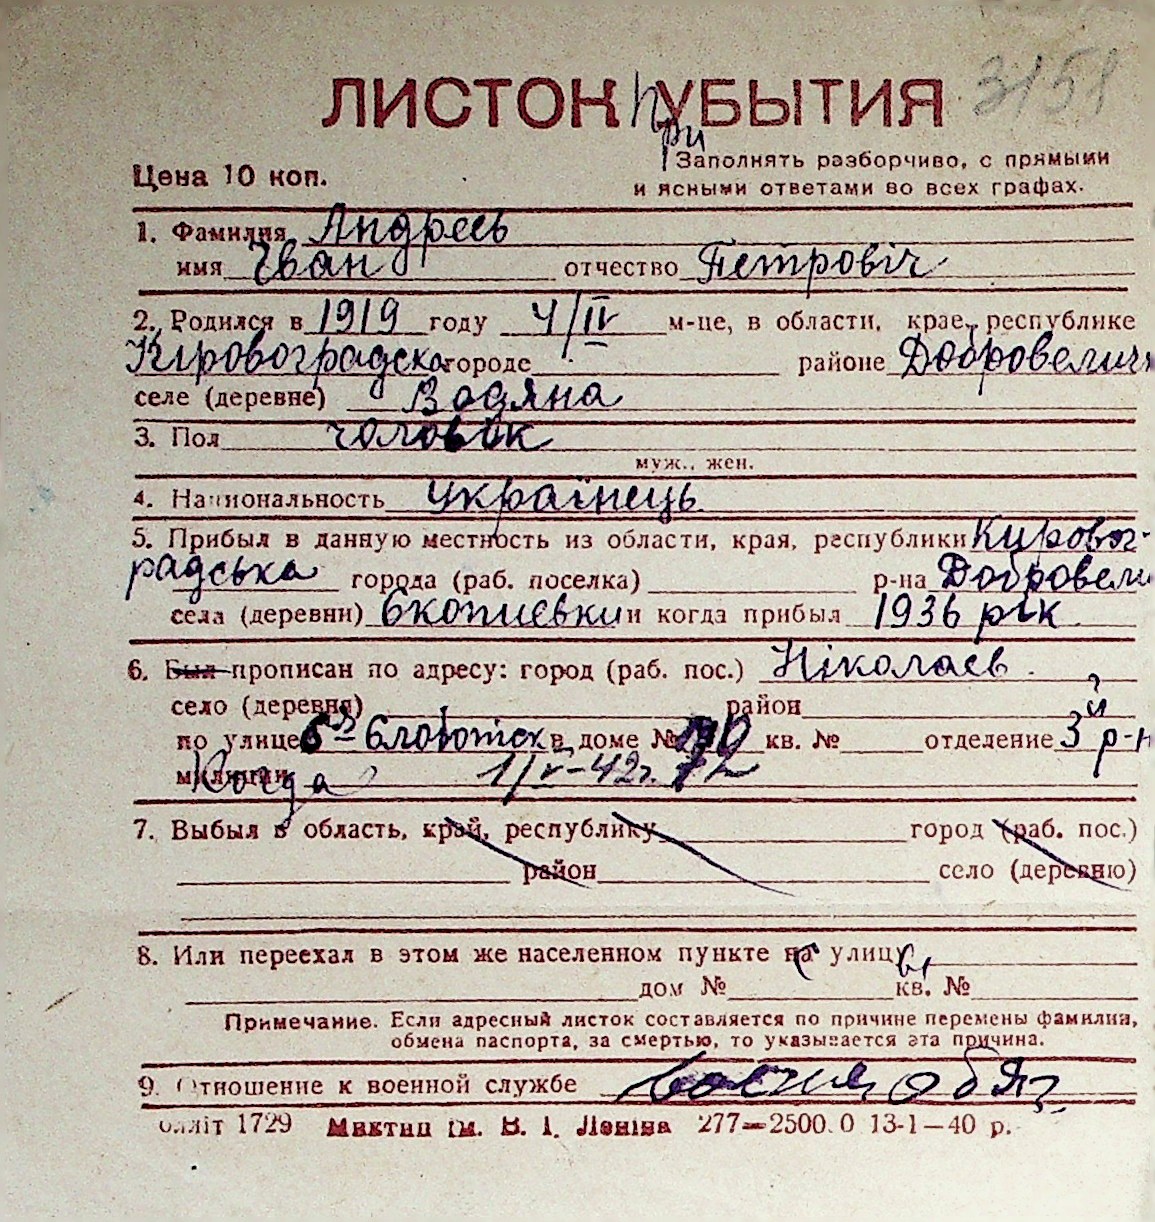 3158
ЛИСТОК УБЫТИЯ
при
Цена 10 коп.
Заполнять разборчиво, с прямыми
и ясными ответами во всех графах.
1. Фамилия Андреєв
имя Іван отчество Петровіч
2. Родился в 1919 году 4/IV м-це, в области, крае, республике
Кіровоградска городе районе Добровелич
селе (деревне) Водяна
3. Пол чоловік
муж., жен.
4. Национальность українець
5. Прибыл в данную местность из области, края, республики Кировог-
радська города (раб. поселка) р-на Добровели
села (деревни) и когда прибыл 1936 рік
6. Был прописан по адресу: город (раб. пос.) Ніколаев
село (деревня) район
по улице 6а Слоботск в доме № кв. № отделение 3й р-н
милиции Когда 1/V-42г. 72
7. Выбыл в область, край, республику город (раб. пос.)
район село (деревню)
8. Или переехал в этом же населенном пункте на улицу
дом № кв. №
Примечание. Если адресный листок составляется по причине перемены фамилии,
обмена паспорта, за смертью, то указывается эта причина.
9. Отношение к военной службе военно обяз
олліт 1729 Миктип ім. В. І. Леніна 277—2500.0 13-1—40 р.